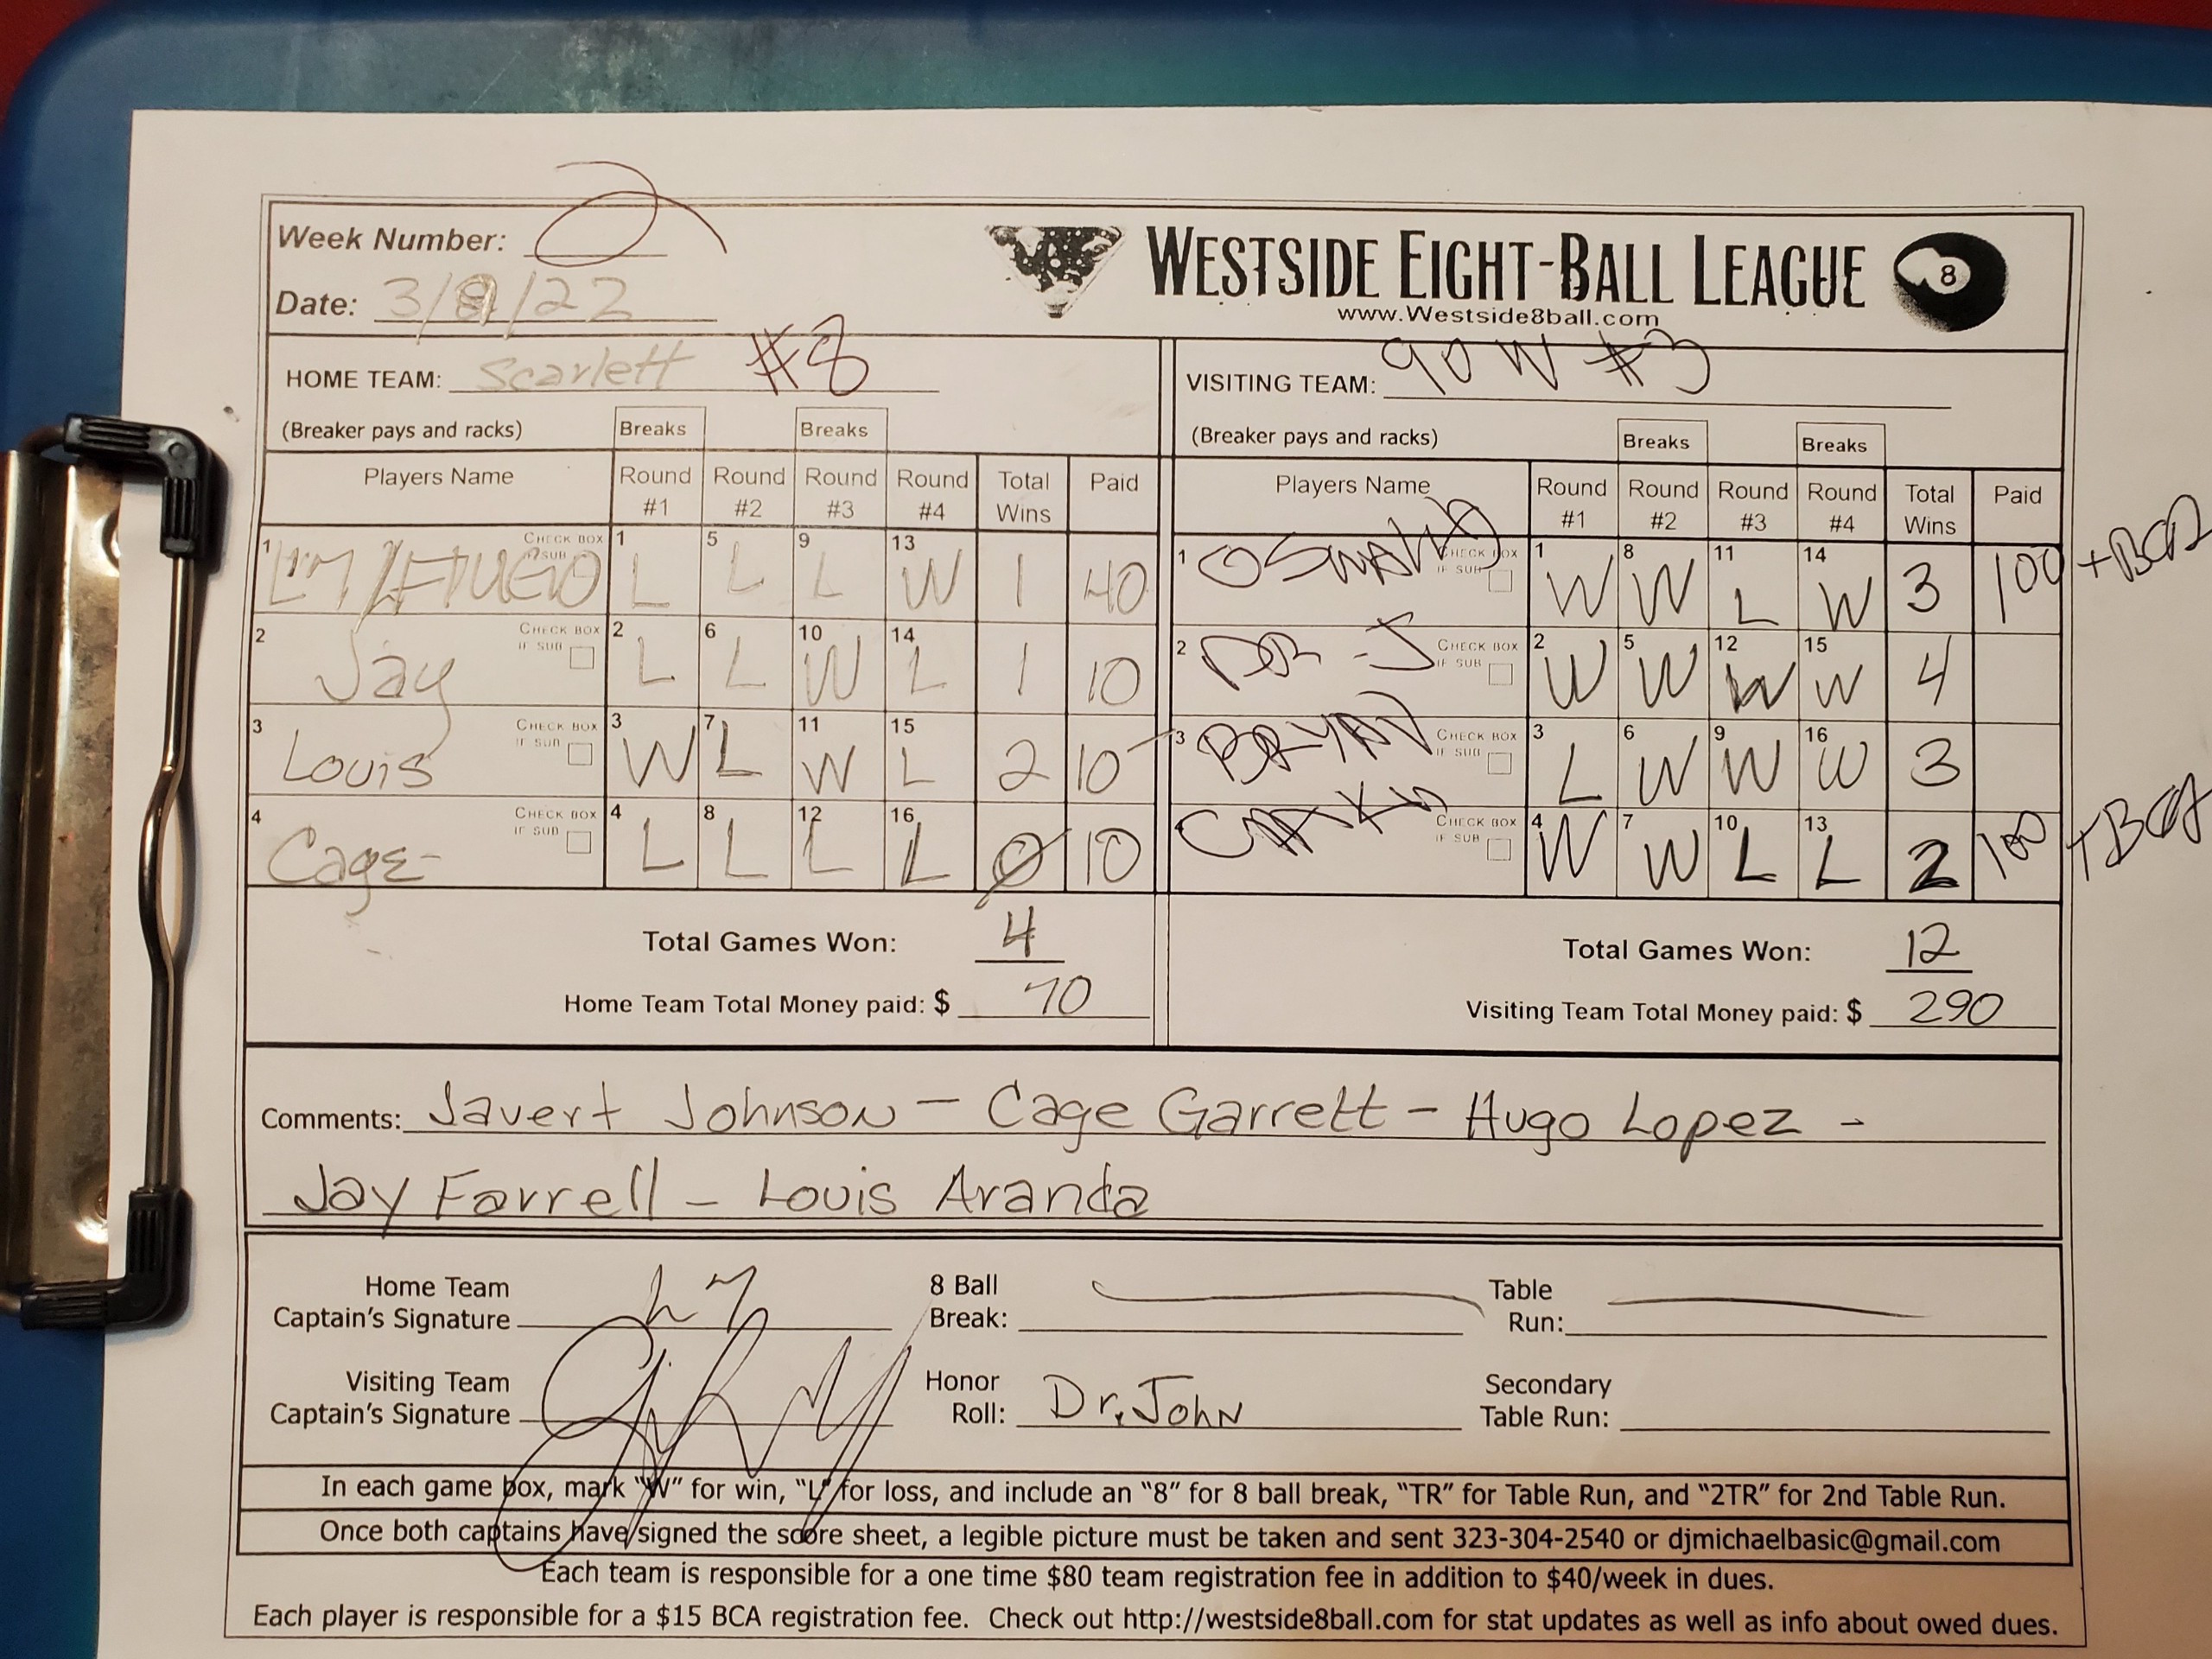 Week Number: 2
WESTSIDE EIGHT-BALL LEAGUE 8
www.Westside8ball.com
Date: 3/8/22
HOME TEAM: Scarlett #8
VISITING TEAM: 90 W #3
(Breaker pays and racks) Breaks Breaks
(Breaker pays and racks) Breaks Breaks
Players Name Round #1 Round #2 Round #3 Round #4 Total Wins Paid
Players Name Round #1 Round #2 Round #3 Round #4 Total Wins Paid
1 HUGO CHECK BOX IF SUB 1 L 5 L 9 L 13 W 1 40
1 CHECK BOX IF SUB 1 W 8 W 11 L 14 W 3 100 + BCA
2 Jay CHECK BOX IF SUB 2 L 6 L 10 W 14 L 1 10
2 DR-J CHECK BOX IF SUB 2 W 5 W 12 W 15 W 4
3 Louis CHECK BOX IF SUB 3 W 7 L 11 W 15 L 2 10
3 BRYAN CHECK BOX IF SUB 3 L 6 W 9 W 16 W 3
4 Cage CHECK BOX IF SUB 4 L 8 L 12 L 16 L 0 10
4 CHECK BOX IF SUB 4 W 7 W 10 L 13 L 2 100 + BCA
Total Games Won: 4
Total Games Won: 12
Home Team Total Money paid: $ 70
Visiting Team Total Money paid: $ 290
Comments: Javert Johnson - Cage Garrett - Hugo Lopez -
Jay Farrell - Louis Aranda
Home Team Captain's Signature
8 Ball Break:
Table Run:
Visiting Team Captain's Signature
Honor Roll: Dr. John
Secondary Table Run:
In each game box, mark "W" for win, "L" for loss, and include an "8" for 8 ball break, "TR" for Table Run, and "2TR" for 2nd Table Run.
Once both captains have signed the score sheet, a legible picture must be taken and sent 323-304-2540 or djmichaelbasic@gmail.com
Each team is responsible for a one time $80 team registration fee in addition to $40/week in dues.
Each player is responsible for a $15 BCA registration fee. Check out http://westside8ball.com for stat updates as well as info about owed dues.